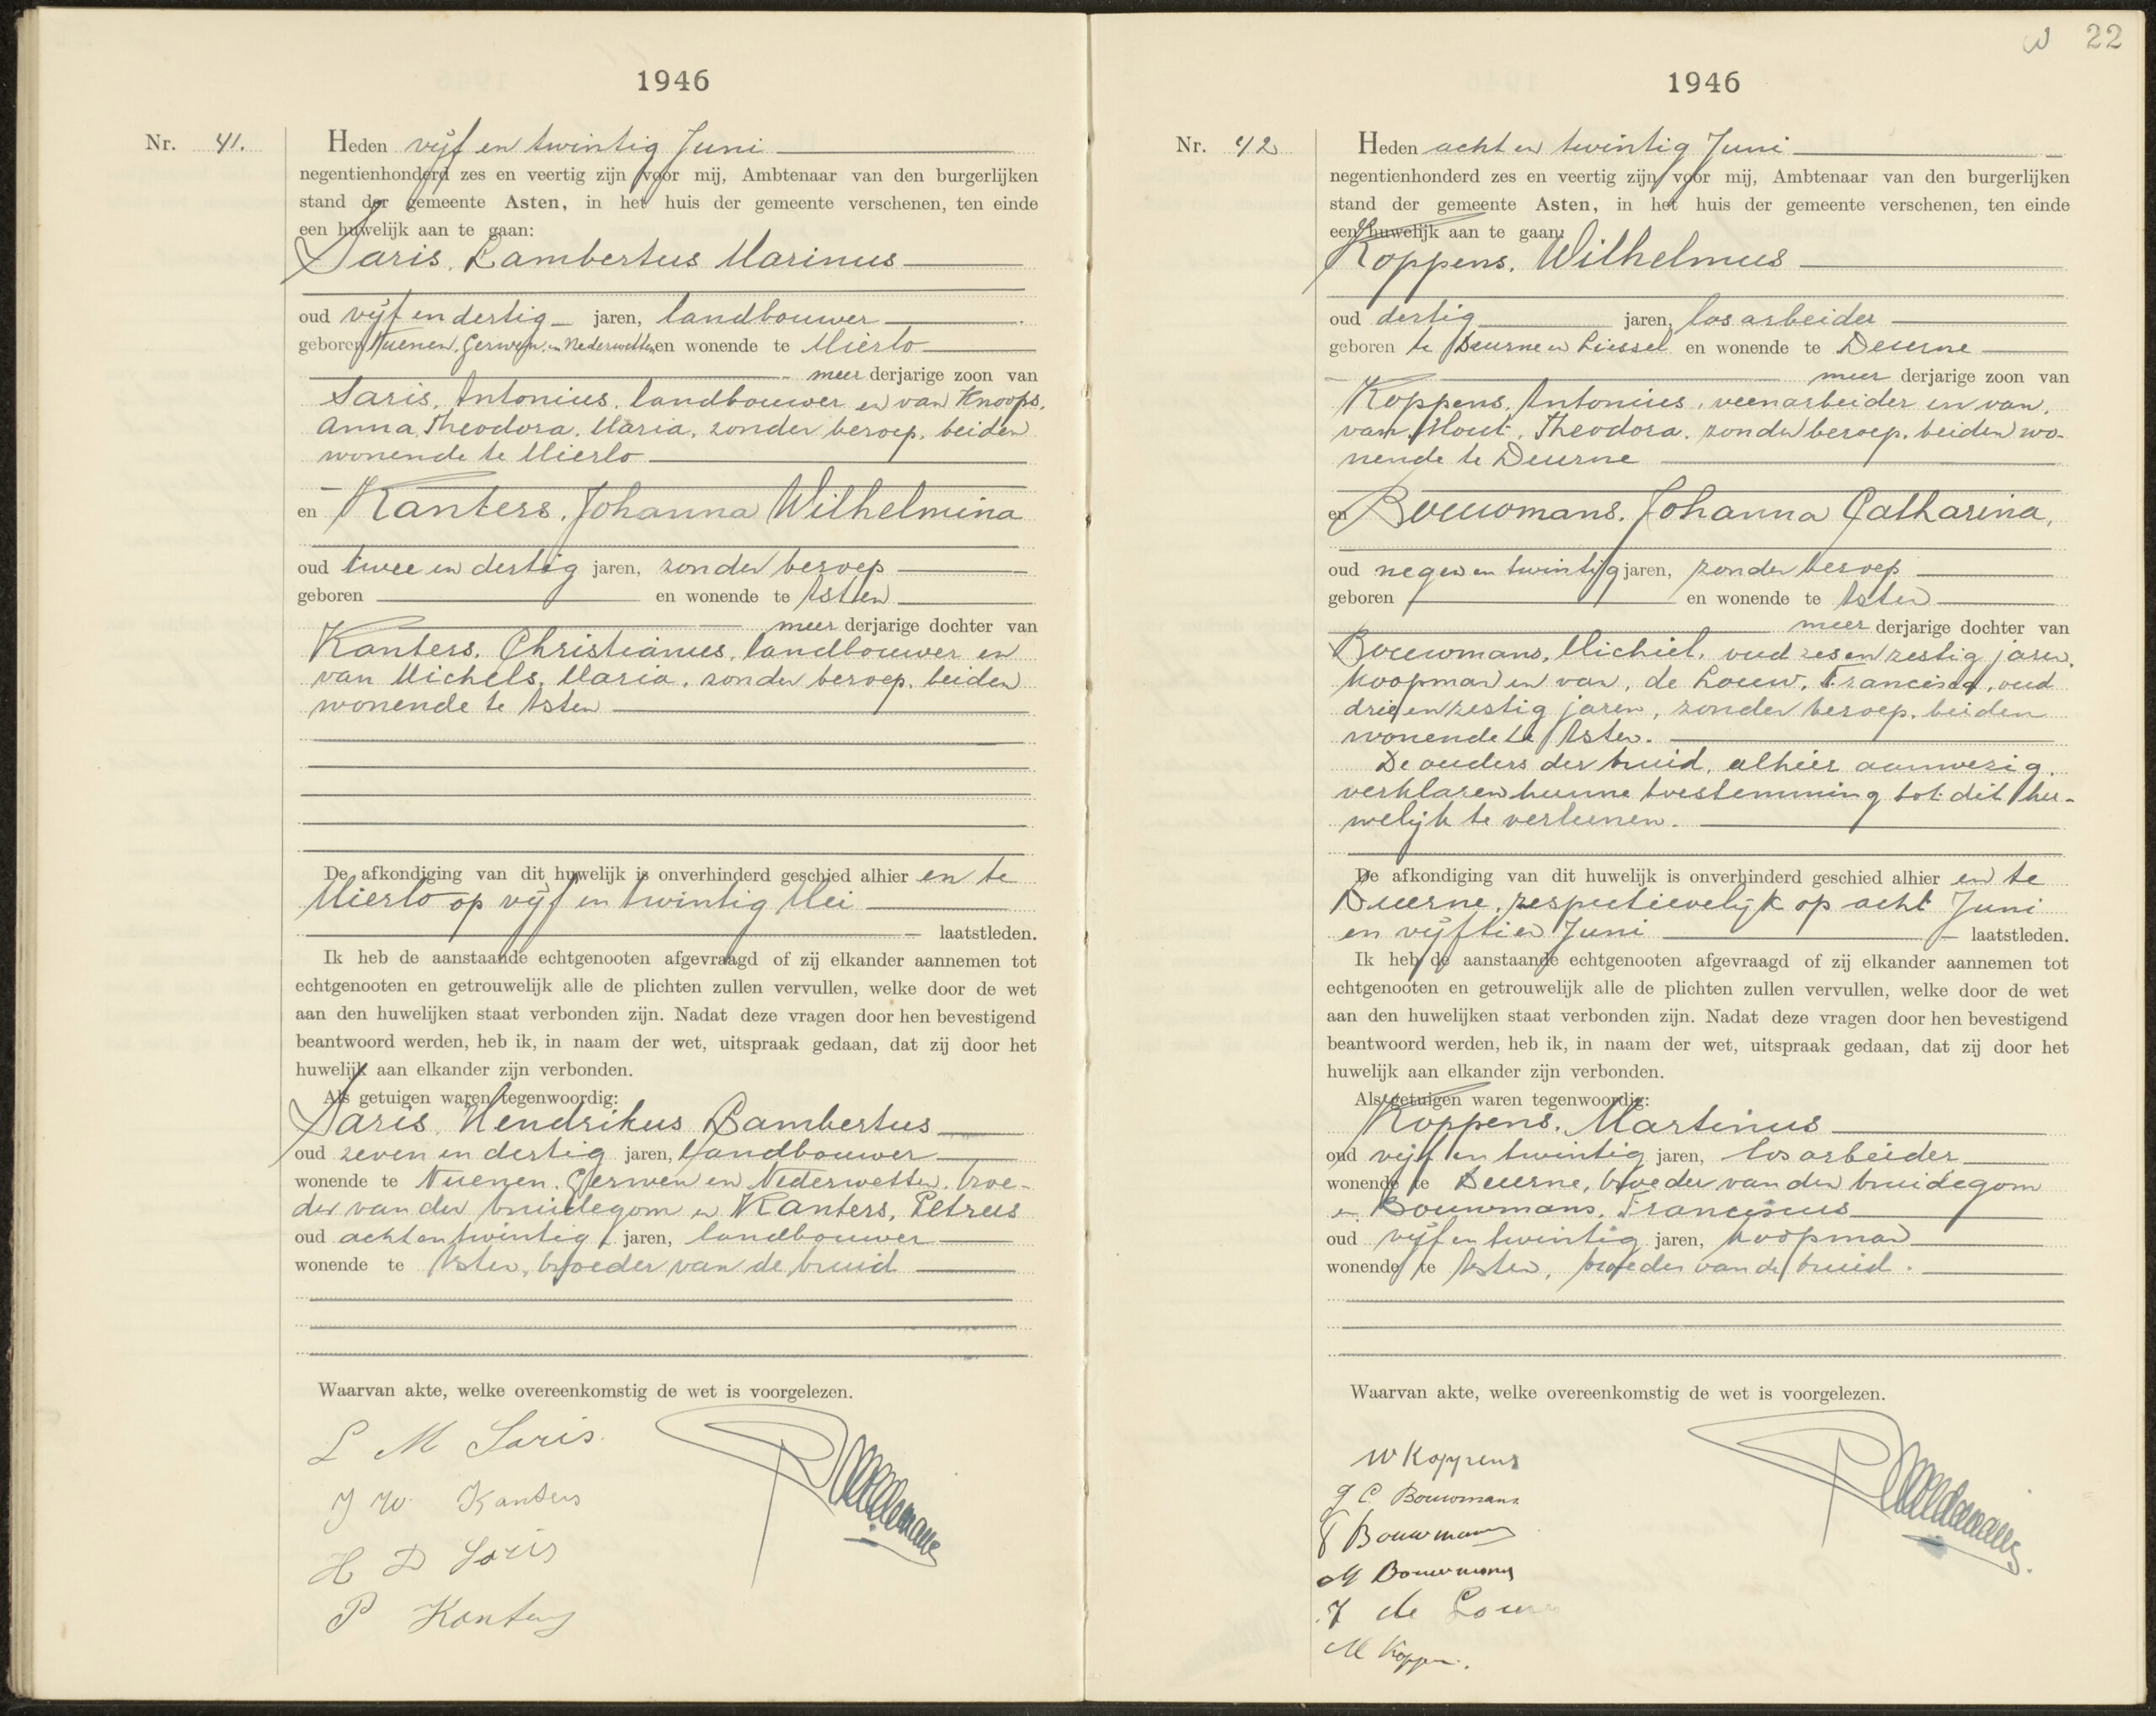 1946
Nr. 41.
Heden vijf en twintig Juni
negentienhonderd zes en veertig zijn voor mij, Ambtenaar van den burgerlijken
stand der gemeente Asten, in het huis der gemeente verschenen, ten einde
een huwelijk aan te gaan:
Saris, Lambertus Marinus
oud vijf en dertig jaren, landbouwer
geboren Nuenen, Gerwen en Nederwetten en wonende te Mierlo
meer derjarige zoon van
Saris, Antonius, landbouwer en van Knoops,
Anna, Theodora, Maria, zonder beroep, beiden
wonende te Mierlo
en Kanters, Johanna Wilhelmina
oud twee en dertig jaren, zonder beroep
geboren en wonende te Asten
meer derjarige dochter van
Kanters, Christianus, landbouwer en
van Michels, Maria, zonder beroep, beiden
wonende te Asten
De afkondiging van dit huwelijk is onverhinderd geschied alhier en te
Mierlo op vijf en twintig Mei
laatstleden.
Ik heb de aanstaande echtgenooten afgevraagd of zij elkander aannemen tot
echtgenooten en getrouwelijk alle de plichten zullen vervullen, welke door de wet
aan den huwelijken staat verbonden zijn. Nadat deze vragen door hen bevestigend
beantwoord werden, heb ik, in naam der wet, uitspraak gedaan, dat zij door het
huwelijk aan elkander zijn verbonden.
Als getuigen waren tegenwoordig:
Saris, Hendrikus Lambertus
oud zeven en dertig jaren, landbouwer
wonende te Nuenen, Gerwen en Nederwetten, broe-
der van den bruidegom en Kanters, Petrus
oud acht en twintig jaren, landbouwer
wonende te Asten, broeder van de bruid
Waarvan akte, welke overeenkomstig de wet is voorgelezen.
L M Saris.
J W Kanters
H L Saris
P Kanters
22
1946
Nr. 42
Heden acht en twintig Juni
negentienhonderd zes en veertig zijn voor mij, Ambtenaar van den burgerlijken
stand der gemeente Asten, in het huis der gemeente verschenen, ten einde
een huwelijk aan te gaan:
Koppens, Wilhelmus
oud dertig jaren, los arbeider
geboren te Deurne en Liessel en wonende te Deurne
meer derjarige zoon van
Koppens, Antonius, veenarbeider en van,
van Hout, Theodora, zonder beroep, beiden wo-
nende te Deurne
en Bouwmans, Johanna Catharina,
oud negen en twintig jaren, zonder beroep
geboren en wonende te Asten
meer derjarige dochter van
Bouwmans, Michiel, oud zes en zestig jaren,
koopman en van, de Louw, Francisca, oud
drie en zestig jaren, zonder beroep, beiden
wonende te Asten.
De ouders der bruid, alhier aanwezig,
verklaren hunne toestemming tot dit hu-
welijk te verleenen.
De afkondiging van dit huwelijk is onverhinderd geschied alhier en te
Deurne, respectievelijk op acht Juni
en vijftien Juni laatstleden.
Ik heb de aanstaande echtgenooten afgevraagd of zij elkander aannemen tot
echtgenooten en getrouwelijk alle de plichten zullen vervullen, welke door de wet
aan den huwelijken staat verbonden zijn. Nadat deze vragen door hen bevestigend
beantwoord werden, heb ik, in naam der wet, uitspraak gedaan, dat zij door het
huwelijk aan elkander zijn verbonden.
Als getuigen waren tegenwoordig:
Koppens, Martinus
oud vijf en twintig jaren, los arbeider
wonende te Deurne, broeder van den bruidegom
en Bouwmans, Franciscus
oud vijf en twintig jaren, koopman
wonende te Asten, broeder van de bruid.
Waarvan akte, welke overeenkomstig de wet is voorgelezen.
W Koppens
J C Bouwmans
F Bouwmans
M Bouwmans
F de Louw
M Koppens.